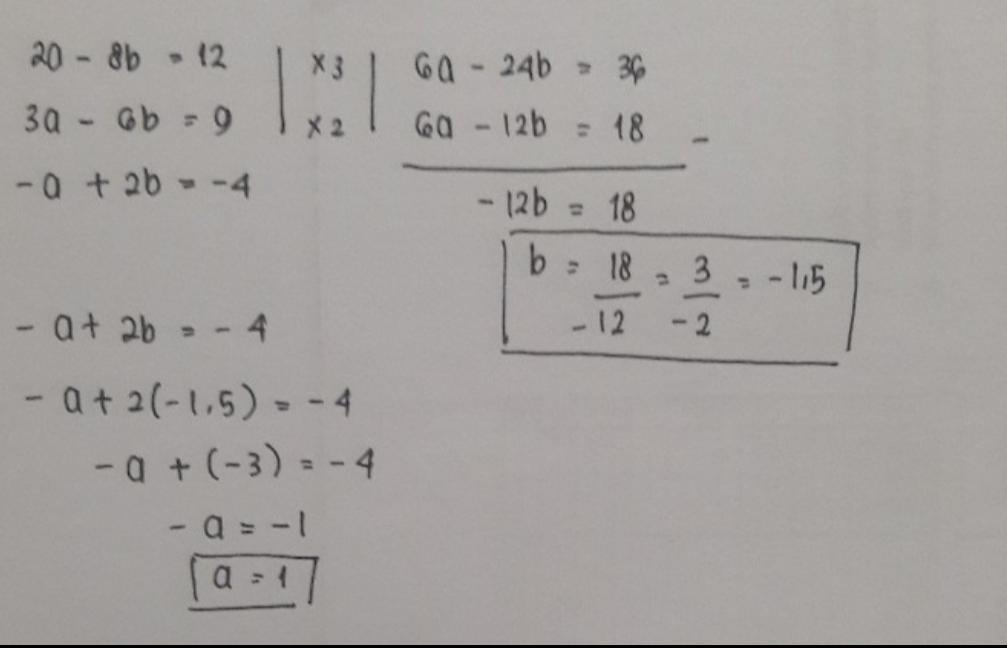 2a - 8b = 12 | x3 | 6a - 24b = 36
3a - 6b = 9 | x2 | 6a - 12b = 18 -
-a + 2b = -4
-12b = 18
b = 18/-12 = 3/-2 = -1,5
-a + 2b = -4
-a + 2(-1,5) = -4
-a + (-3) = -4
-a = -1
a = 1